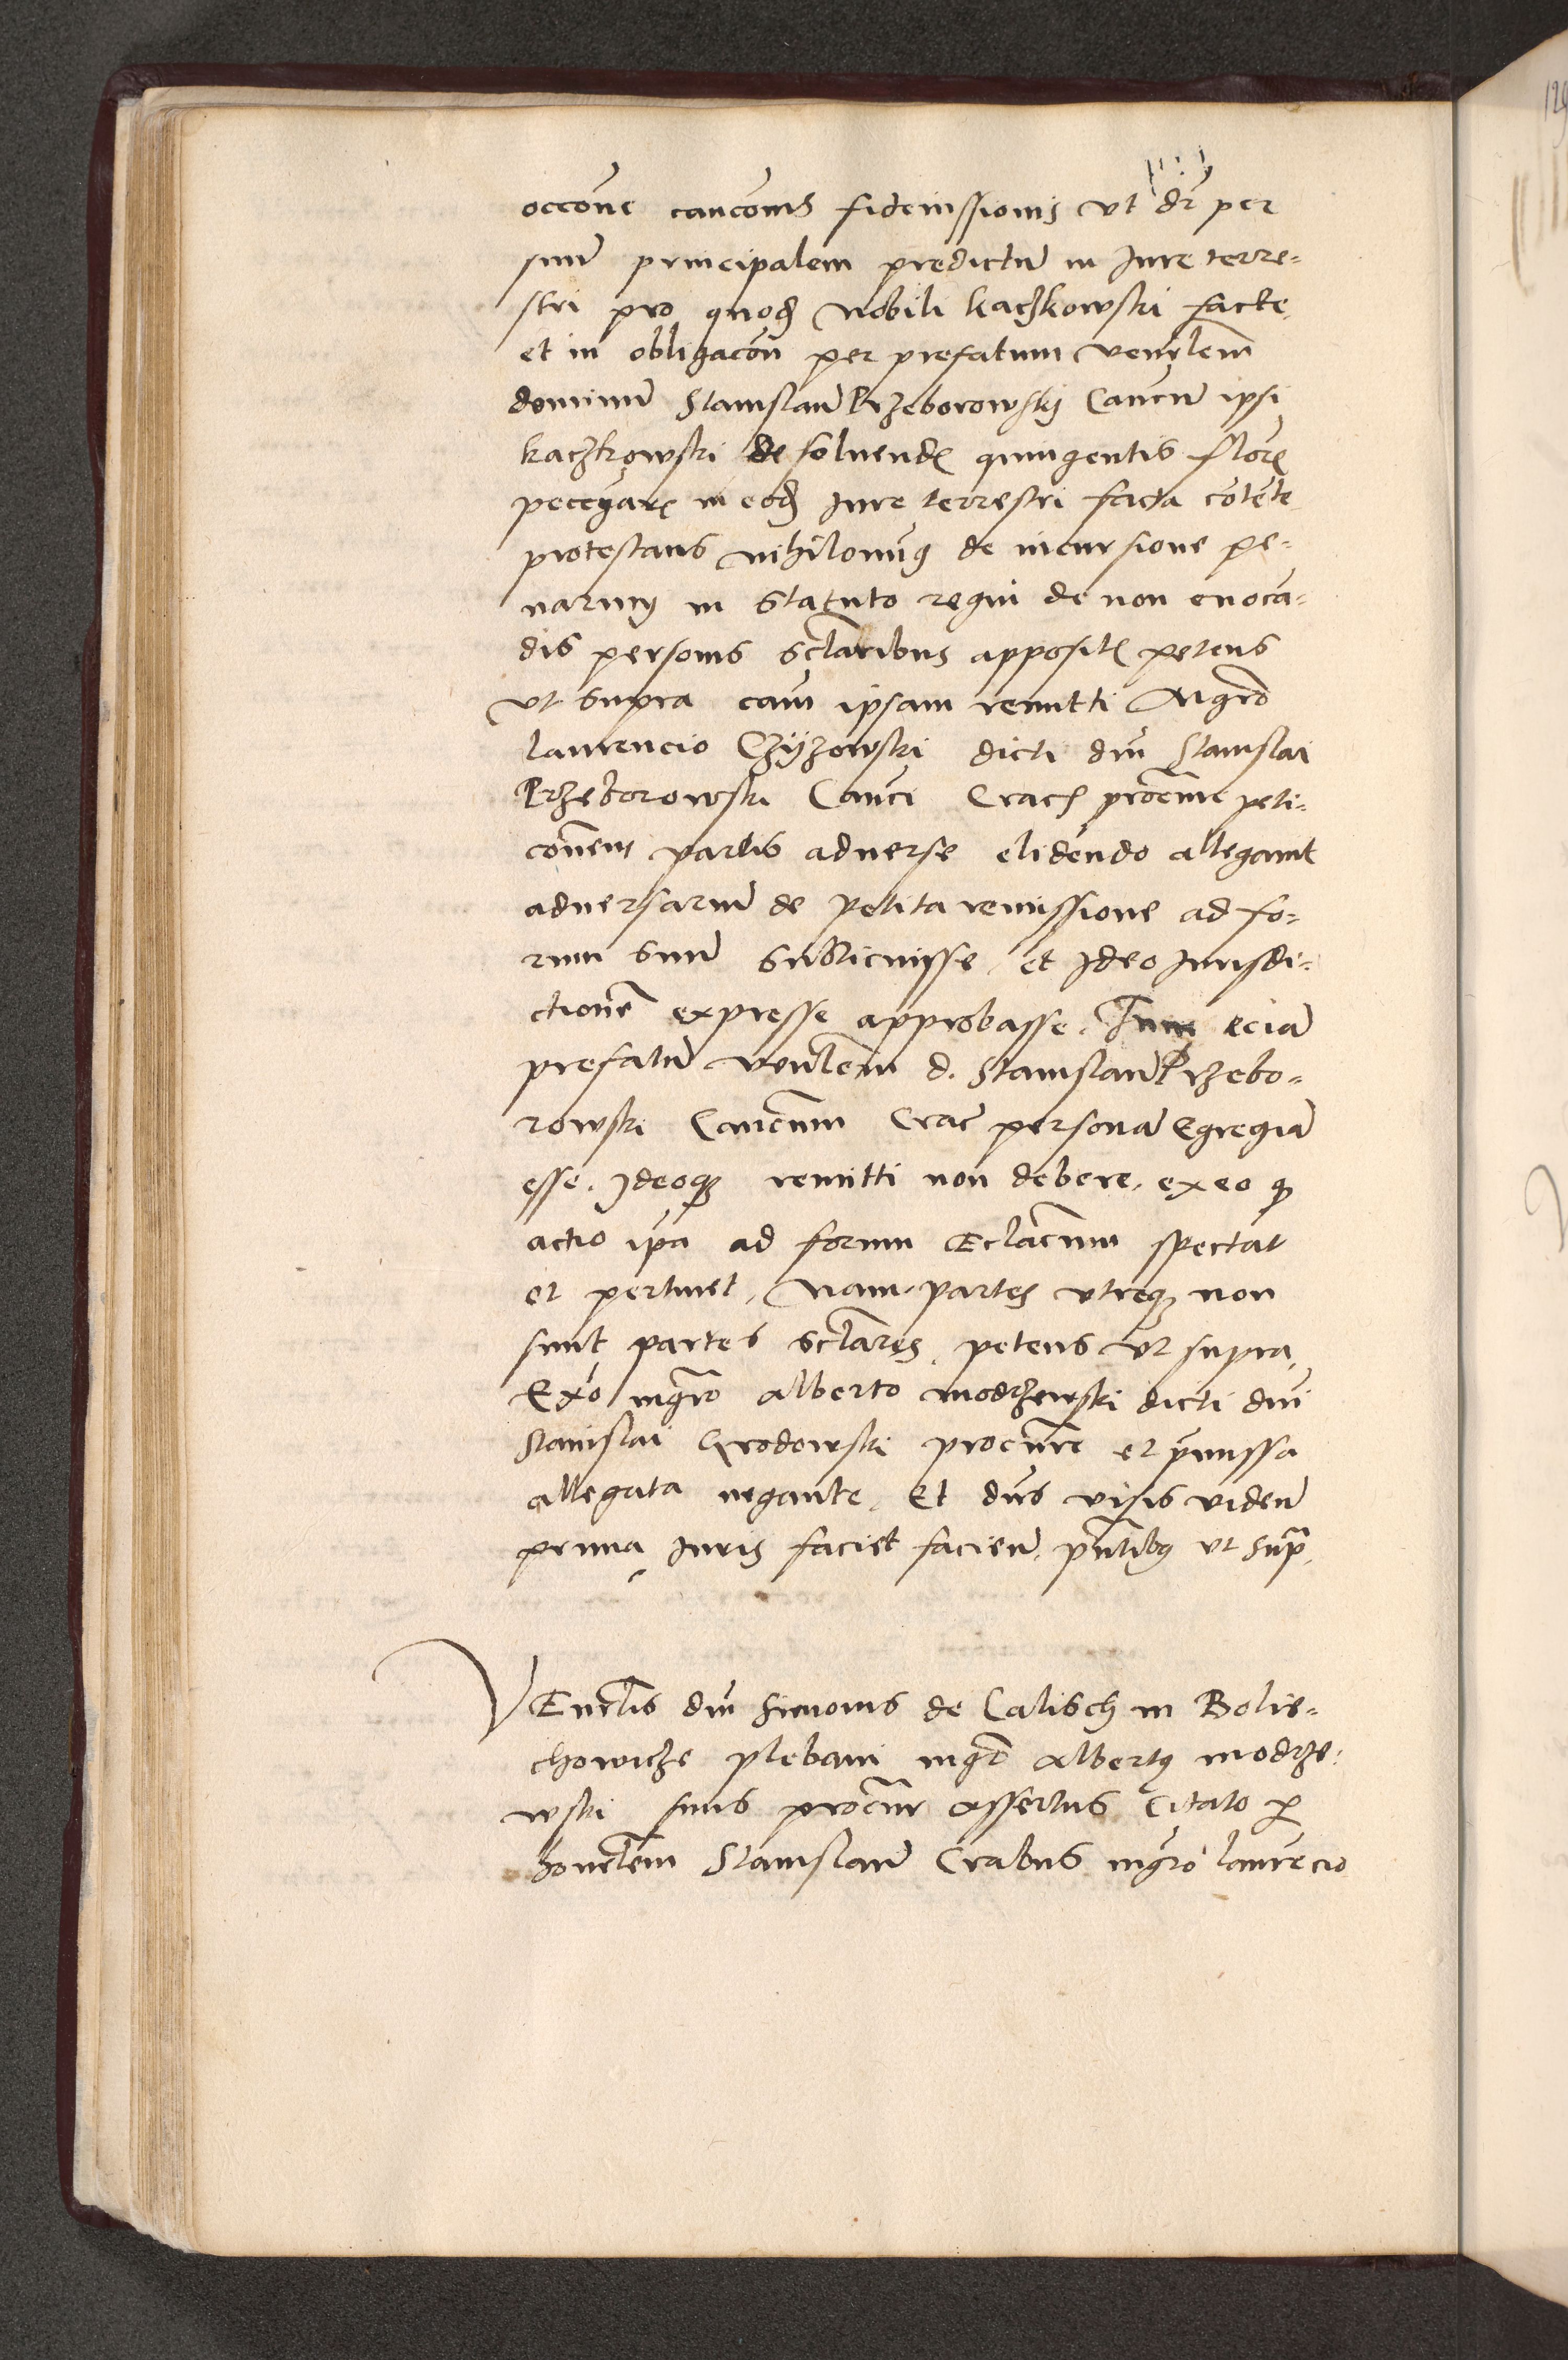 occone cauconis fideiussionis ut dr per
suum principalem predictum in Jure terre=
stri pro quod Nobili kaczkowski facte
et in obligacon per prefatum venrlem
dominum Stanislaum Przeborowskij Cancum ipsi
kaczkowski de soluend quingentis flore
pecuniar in eod Jure terrestri facta cotente
protestans nihilominus de incursione pe=
narum in Statuto regni de non euoca=
dis personis sclaribus apposit petens
vt supra cam ipsam remitti Mgro
laurencio Czijzowski dicti dni Stanislai
Przeborowski Canci Crac procine peti=
conem partis aduerse elidendo allegauit
aduersarium de petita remissione ad fo=
rum suum subticuisse, et Ideo Jurisdi=
ctione expresse approbasse. Tum ecia
prefatum venrlem d. Stanislaum Przebo=
rowski Cancum Crac persona Egregia
esse. Ideoq remitti non debere, ex eo q
actio ipa ad forum Eclacum spectat
et pertinet, Nam partes vtreq non
sunt partes sclares, petens vt supra,
Exo mgro alberto modrzewski dicti dni
Stanislai Grodowski procure et pmissa
allegata negante, Et dns visis viden
prima Juris faciet facien, pntibus vt supr,
VEnrlis dni Simonis de Calisch in Bolie=
chowicze plebani mgr albertus modrze=
wski suus procur assertus Citato p
honrlem Stanislaum Crabus mgro laurecio